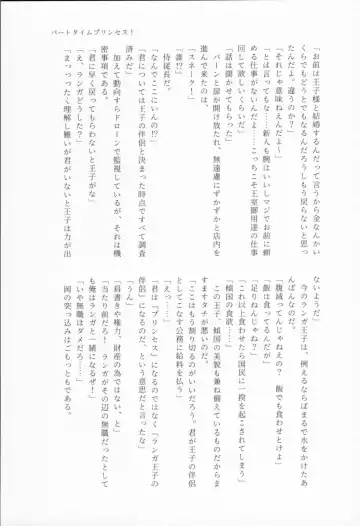 パートタイムプリンセス！
「お前は王子様と結婚するんだって言うから金なんかい
くらでもどうとでもなるんだろうしもう戻らないと思っ
てたんだよ。違うのか？」
「それじゃ意味ねえんだよ〜」
「とは言ってもな…新人も腕はいいしマジでお前に頼
める仕事がないんだよ…こっちこそ王室御用達の仕事
回して欲しいくらいだ」
「話は聞かせてもらった」
バーンと扉が開け放たれ、無遠慮にずかずかと店内を
進んで来たのは、
「スネーク！」
「誰!?」
侍従長だ。
「なんでここにいんの!?」
「君については王子の伴侶と決まった時点ですべて調査
済みだ」
加えて動向すらドローンで監視しているが、それは機
密事項だ。
「君に早く戻ってもらわないと王子がな」
「え、ランガどうした？」
「まっったく理解し難いが君がいないと王子は力が出
ないようだ」
今のランガ王子は、例えるならばまるで水をかけたあ
んぱんなのだ。
「腹減ってんじゃねえの？　飯でも食わせとけよ」
「飯は食ってるんだが」
「足りねんじゃね？」
「これ以上食わせたら国民に一揆を起こされてしまう」
「傾国の食欲……」
この王子、傾国の美貌も兼ね備えているものだからま
すますタチが悪いのだ。
「ここはもう割り切るのがいいだろう。君が王子の伴侶
としてこなす公務に給料を払う」
「えっ……」
「君は『プリンセス』になるのではなく『ランガ王子の
伴侶』になるのだ、という意思だと言ったな」
「うん」
「肩書きや権力、財産の為ではない、と」
「当たり前だろ！　ランガがその辺の無職だったとして
も俺はランガと一緒になるぜ！」
「いや無職はダメだろう……」
岡の突っ込みはごもっともである。